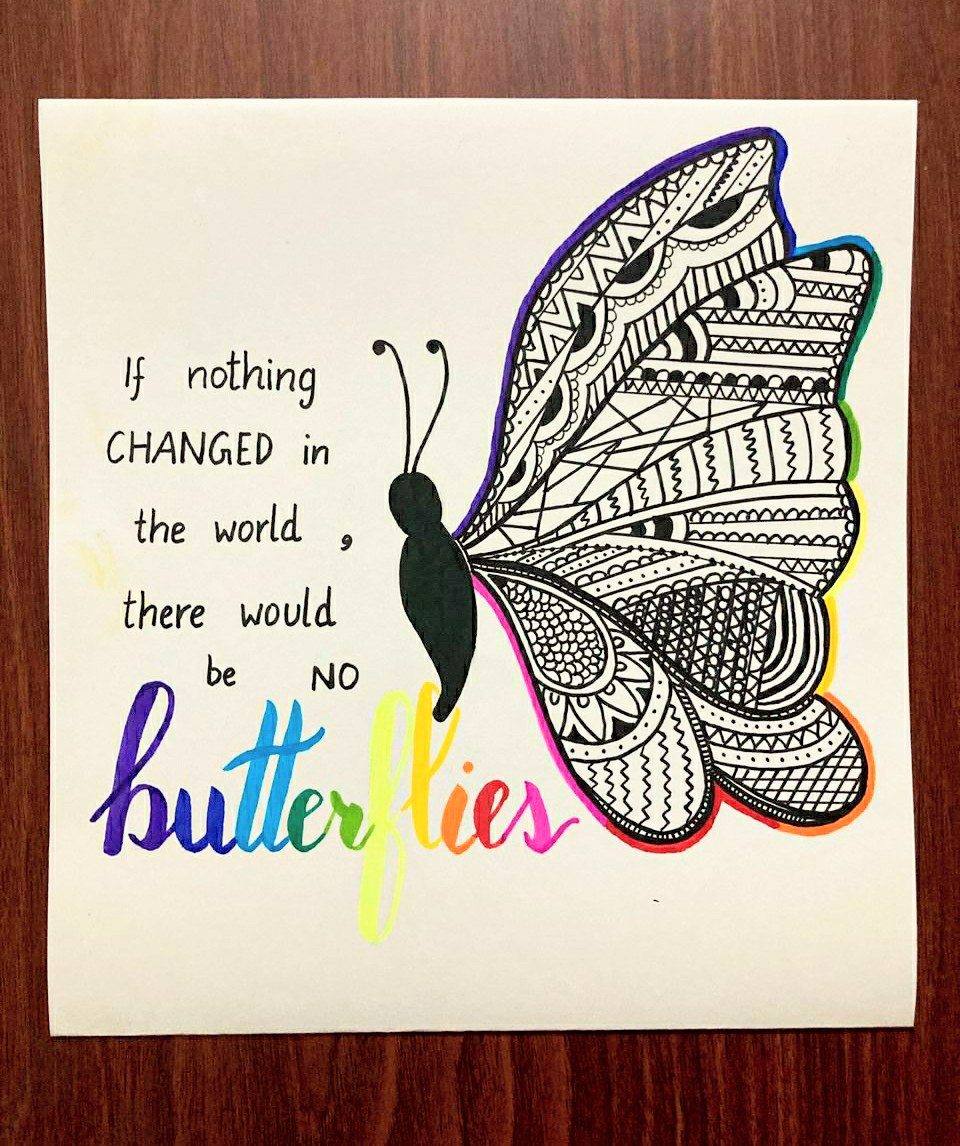 If nothing
CHANGED in
the world ,
there would
be NO
butterflies